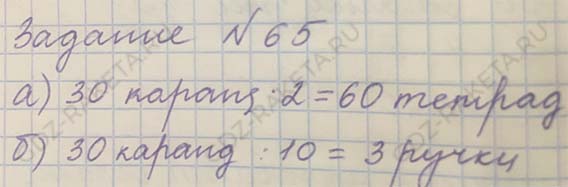 Задание № 65
а) 30 каранд · 2 = 60 тетрад
б) 30 каранд : 10 = 3 ручки